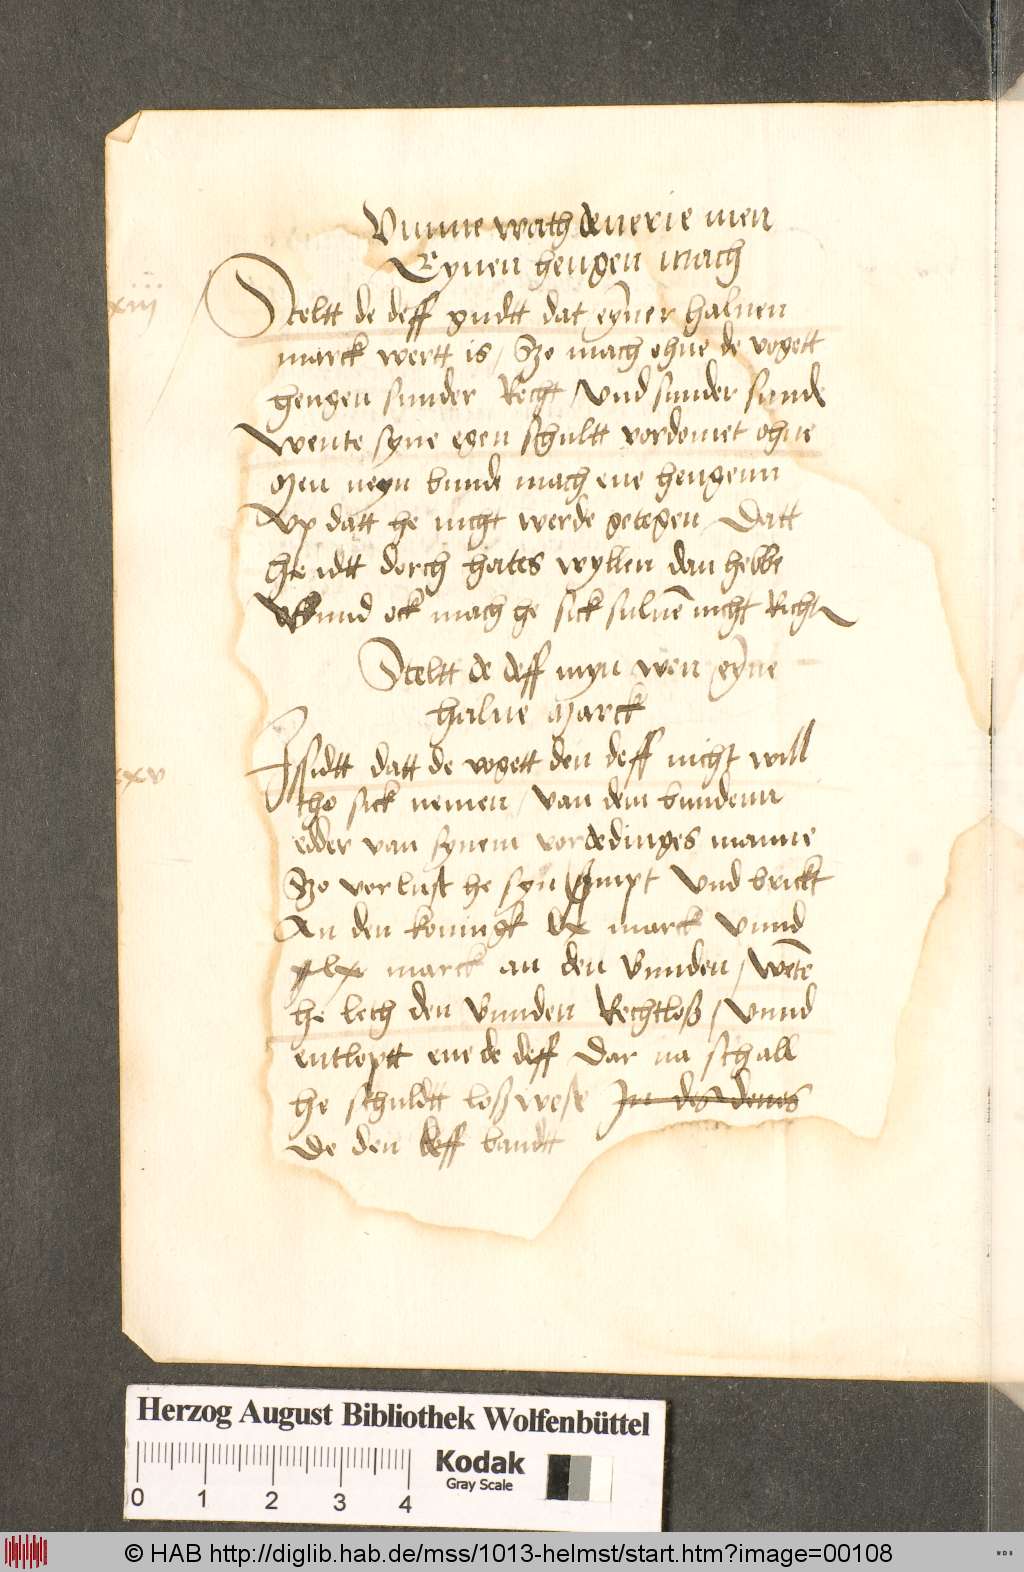 Vmme wath deuerie men
Eynen hengen mach
xiiij
Steltt de deff gudtt dat eyner haluen
marck wertt is / Szo mach ohne de vogett
hengen sunder Recht / vnd sunder sunde
Wente syne egen schultt vordomet ohne
Men neyn bunde mach ene hengenn
vp datt he nicht werde getegen / Datt
he idtt dorch hates wyllen dan hebbe
Vnnd ock mach he sick suluē nicht Richtē
Steltt de deff myn wen eyne
halue Marck
xxv
Issidtt datt de vogett den deff nicht will
tho sick nemen / van dem bundenn
edder van synem vordedinges manne
Szo vorlust he syn ampt vnd brickt
An den koningk lx marck vnnd
xlx marck an den Bunden / wēte
he leth den Bunden Rechtloß / vnnd
entloptt ene de deff Dar na schall
he schuldtt loß wese In des denes
De den deff bandtt
Herzog August Bibliothek Wolfenbüttel
0 1 2 3 4
Kodak
Gray Scale
© HAB http://diglib.hab.de/mss/1013-helmst/start.htm?image=00108